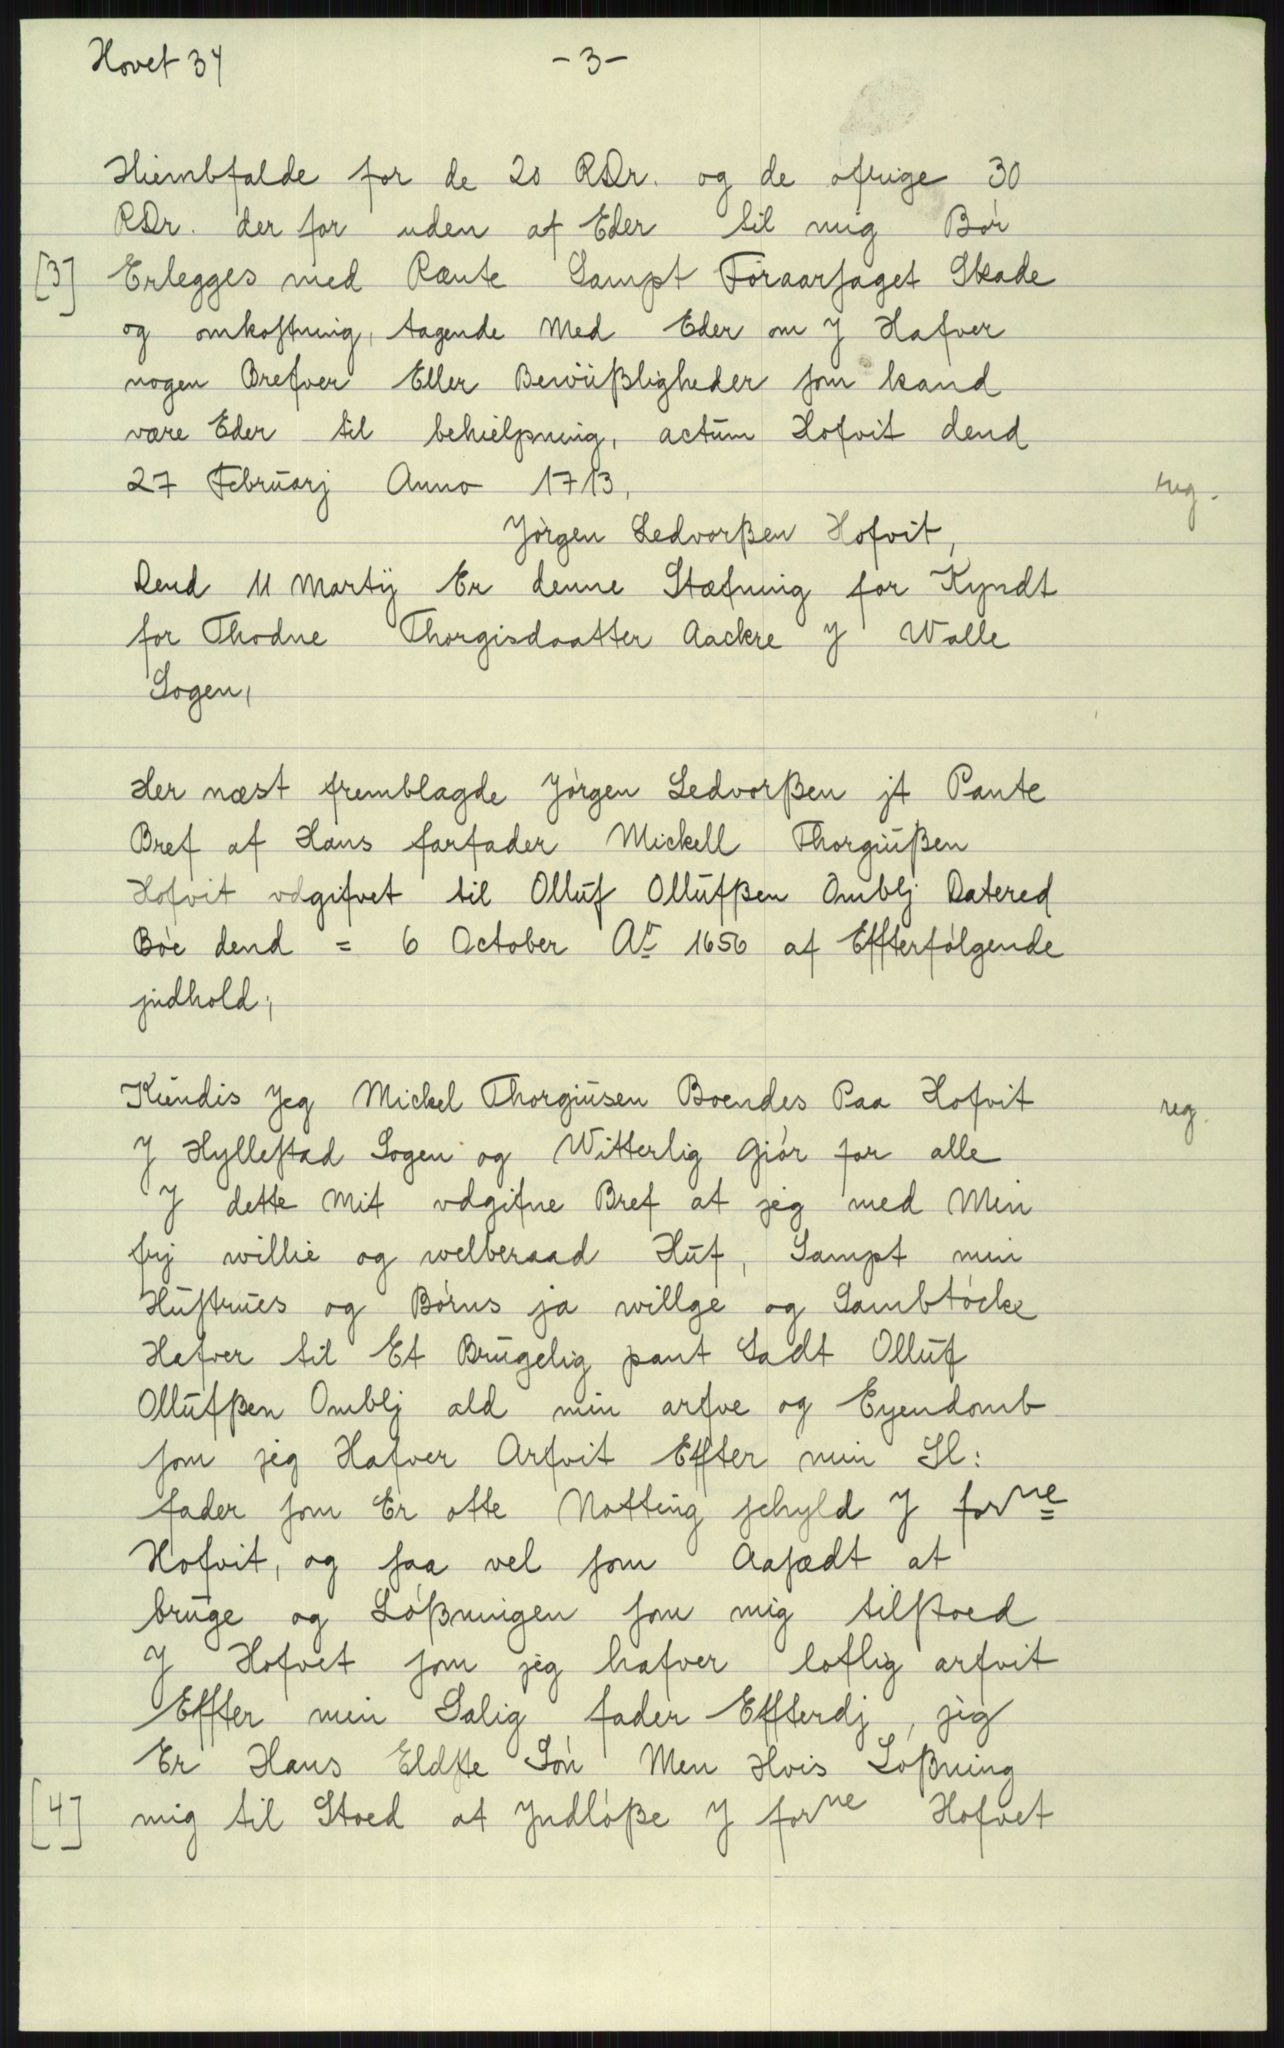 Hovet 34
-3-
Hiembfalde for de 20 RDr. og de ofrige 30
RDr. der for uden af Eder til mig Bør
[3] Erlegges med Rænte Sampt Foraarsaget Skade
og omkostning, tagende Med Eder om J Hafver
nogen Brefver Eller Bewüßligheder som kand
være Eder til behielpning, actum Hofvit dend
27 Februarj Anno 1713,
reg.
Jørgen Sedvorßen Hofvit,
Dend 11 Martÿ Er denne Stæfning for Kyndt
for Thodne Thorgisdaatter Aackre J Walle
Sogen,
Her næst fremblagde Jørgen Sedvorßen jt Pante
Bref af Hans farfader Mickell Thorgiußen
Hofvit vdgifvet til Olluf Ollufßen Omblj Datered
Bòe dend = 6 October Ao 1656 af Effterfølgende
jndhold,
Kiendis Jeg Mickel Thorgiusen Boendes Paa Hofvit
reg.
J Hyllestad Sogen og Witterlig Giør for alle
J dette Mit vdgifne Bref at jeg med Min
frj willie og welberaad Huf, Sampt min
Hustrues og Børns ja willge og Sambtøcke
Hafver til Et Brugelig pant Sadt Olluf
Ollufßen Omblj ald min arfve og Eyendomb
som jeg Hafver Arfvit Effter min Sl:
fader som Er otte Notting schyld J forne
Hofvit, og saa vel som Aasædt at
bruge og Løßningen som mig tilstoed
J Hofvet som jeg hafver loflig arfvit
Effter min Salig fader Effterdj, jeg
Er Hans Eldste Søn Men Hvis Løßning
[4] mig til Stoed at Jndløße J forne Hofvet